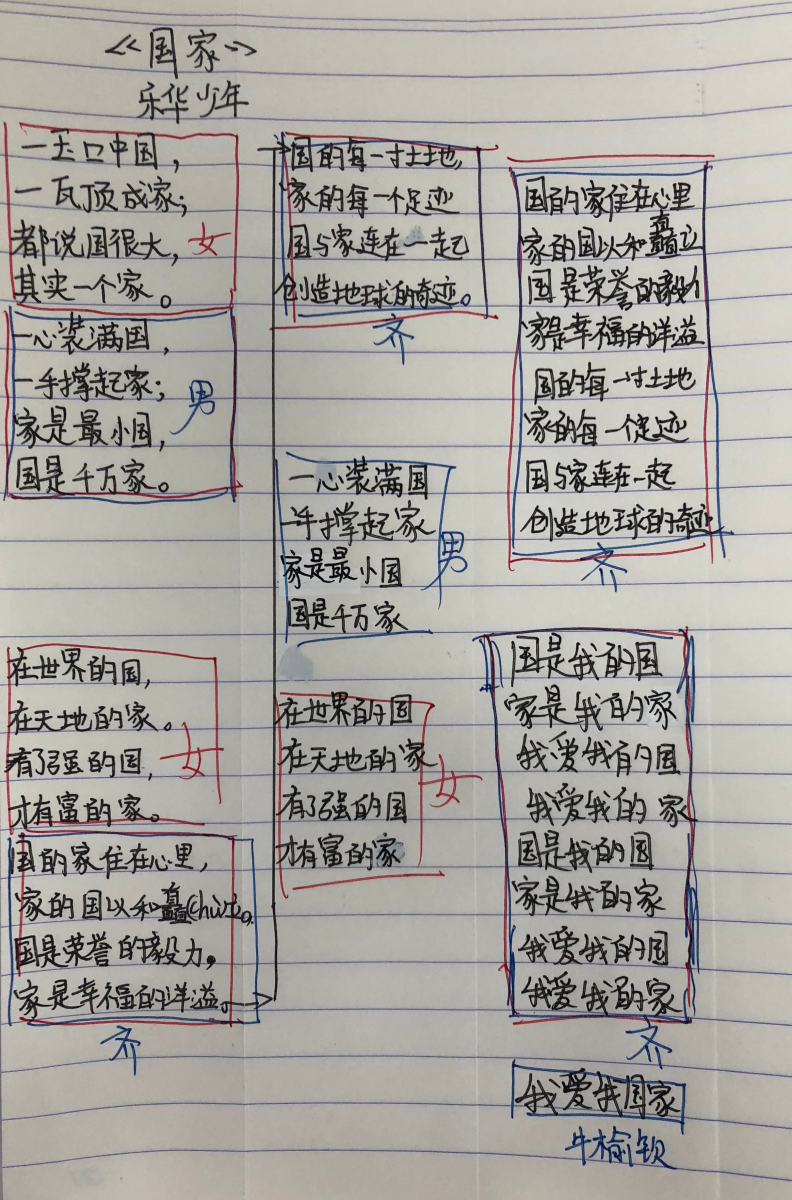 《国家》
乐华少年
一玉口中国，
一瓦顶成家；
都说国很大，
其实一个家。
女
一心装满国，
一手撑起家；
家是最小国，
国是千万家。
男
在世界的国，
在天地的家。
有了强的国，
才有富的家。
女
国的家住在心里，
家的国以和矗(chù)立。
国是荣誉的毅力，
家是幸福的洋溢。
齐
国的每一寸土地，
家的每一个足迹
国与家连在一起
创造地球的奇迹。
齐
一心装满国
一手撑起家
家是最小国
国是千万家
男
在世界的国
在天地的家
有了强的国
才有富的家
女
国的家住在心里
家的国以和矗立
国是荣誉的毅力
家是幸福的洋溢
国的每一寸土地
家的每一个足迹
国与家连在一起
创造地球的奇迹
齐
国是我的国
家是我的家
我爱我的国
我爱我的家
国是我的国
家是我的家
我爱我的国
我爱我的家
齐
我爱我国家
牛榆钡